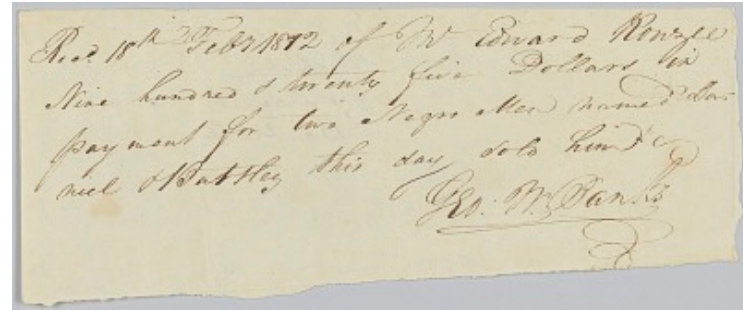 Recd. 18th Feby 1812 of Mr Edward Rowzee
Nine hundred & twenty five Dollars in
payment for two Negro Men named Dan-
niel & Battley this day sold him
Geo: W. Banks